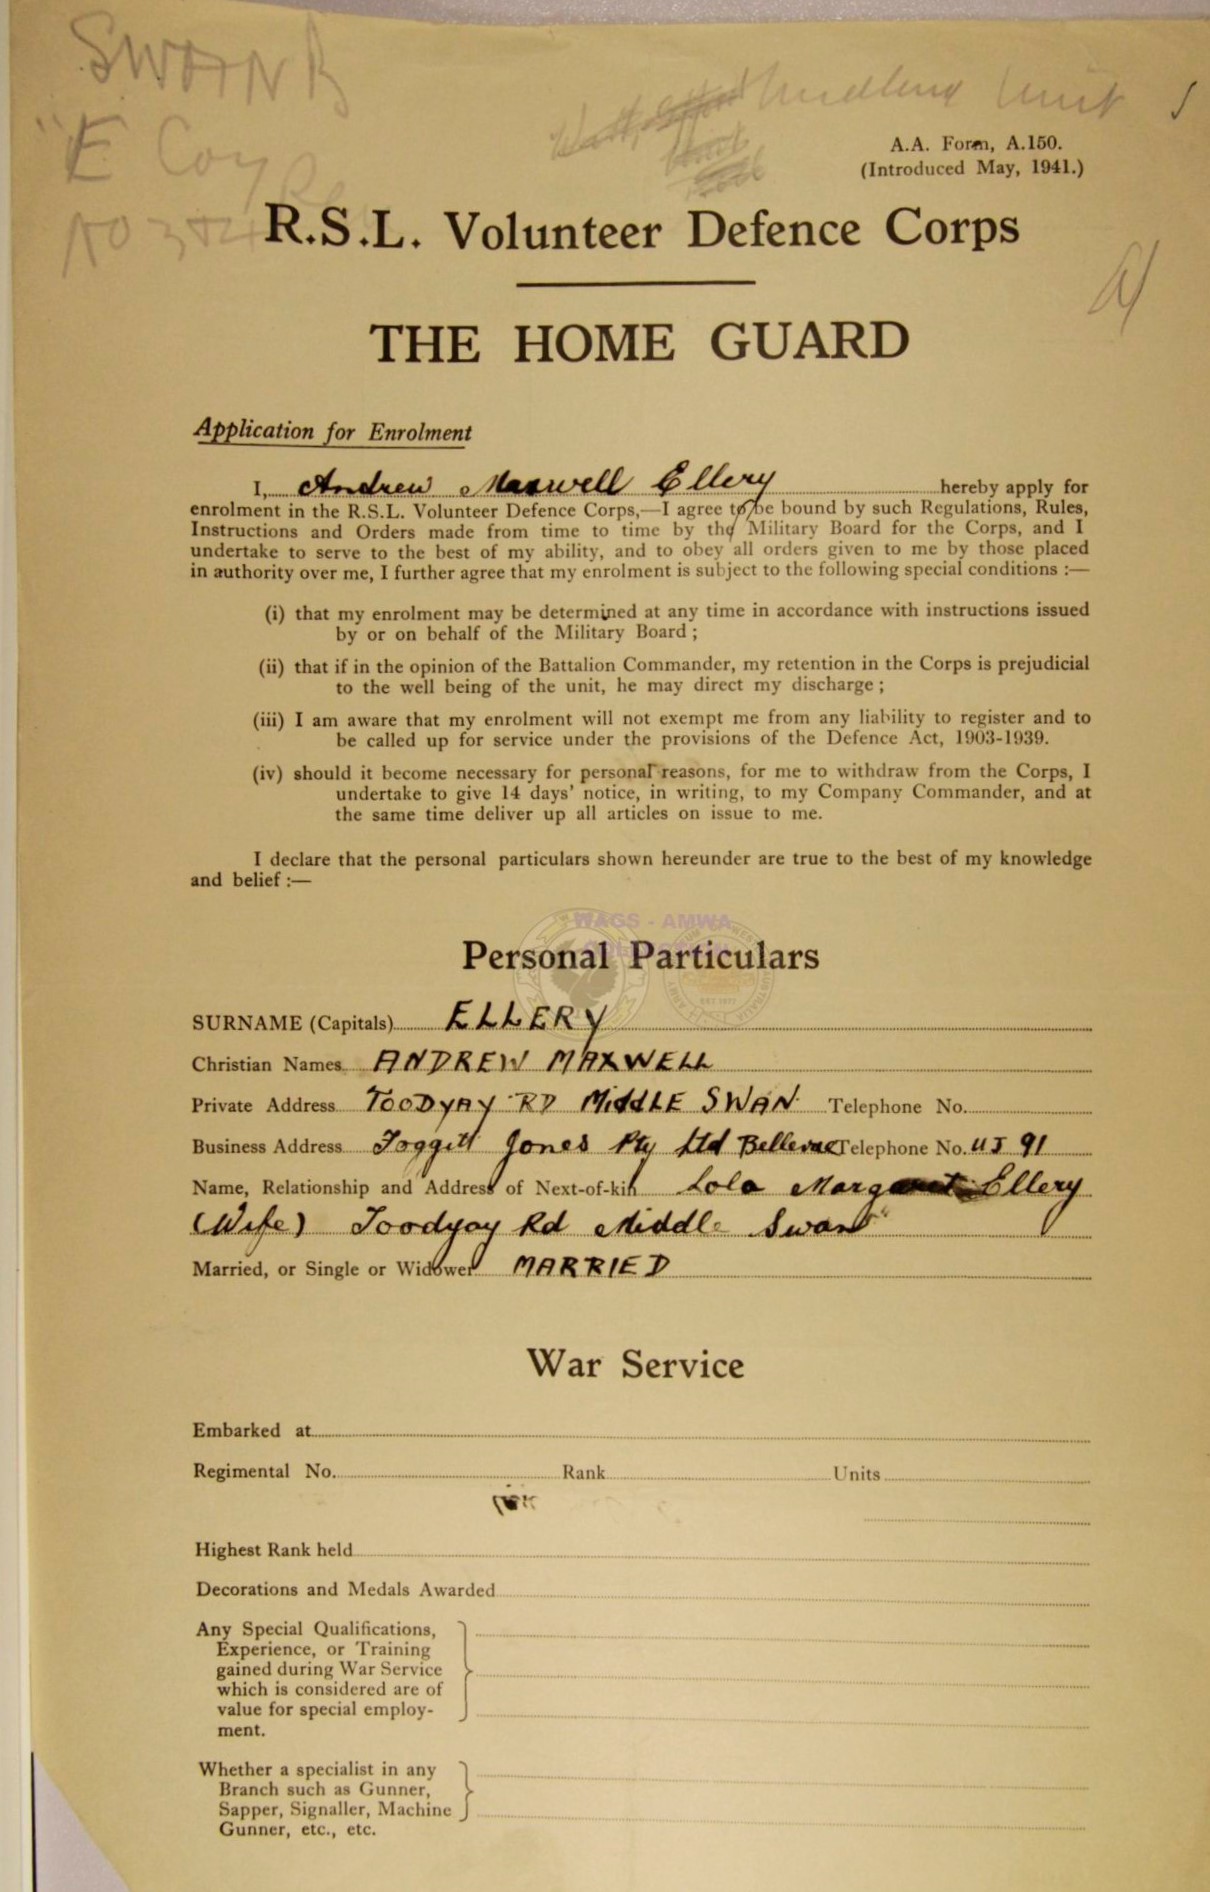 SWAN B
"E Coy
Midland Unit
A.A. Form, A.150.
(Introduced May, 1941.)
R.S.L. Volunteer Defence Corps
THE HOME GUARD
Application for Enrolment
I, Andrew Maxwell Ellery hereby apply for
enrolment in the R.S.L. Volunteer Defence Corps,—I agree to be bound by such Regulations, Rules,
Instructions and Orders made from time to time by the Military Board for the Corps, and I
undertake to serve to the best of my ability, and to obey all orders given to me by those placed
in authority over me, I further agree that my enrolment is subject to the following special conditions :—
(i) that my enrolment may be determined at any time in accordance with instructions issued
by or on behalf of the Military Board ;
(ii) that if in the opinion of the Battalion Commander, my retention in the Corps is prejudicial
to the well being of the unit, he may direct my discharge ;
(iii) I am aware that my enrolment will not exempt me from any liability to register and to
be called up for service under the provisions of the Defence Act, 1903-1939.
(iv) should it become necessary for personal reasons, for me to withdraw from the Corps, I
undertake to give 14 days' notice, in writing, to my Company Commander, and at
the same time deliver up all articles on issue to me.
I declare that the personal particulars shown hereunder are true to the best of my knowledge
and belief :—
WAGS - AMWA
COLLECTION
Personal Particulars
SURNAME (Capitals) ELLERY
Christian Names ANDREW MAXWELL
Private Address TOODYAY RD MIDDLE SWAN Telephone No.
Business Address Foggitt Jones Pty Ltd Bellevue Telephone No. UJ 91
Name, Relationship and Address of Next-of-kin Lola Margaret Ellery
(Wife) Toodyay Rd Middle Swan
Married, or Single or Widower MARRIED
War Service
Embarked at
Regimental No. Rank Units
Highest Rank held
Decorations and Medals Awarded
Any Special Qualifications,
Experience, or Training
gained during War Service
which is considered are of
value for special employ-
ment.
Whether a specialist in any
Branch such as Gunner,
Sapper, Signaller, Machine
Gunner, etc., etc.